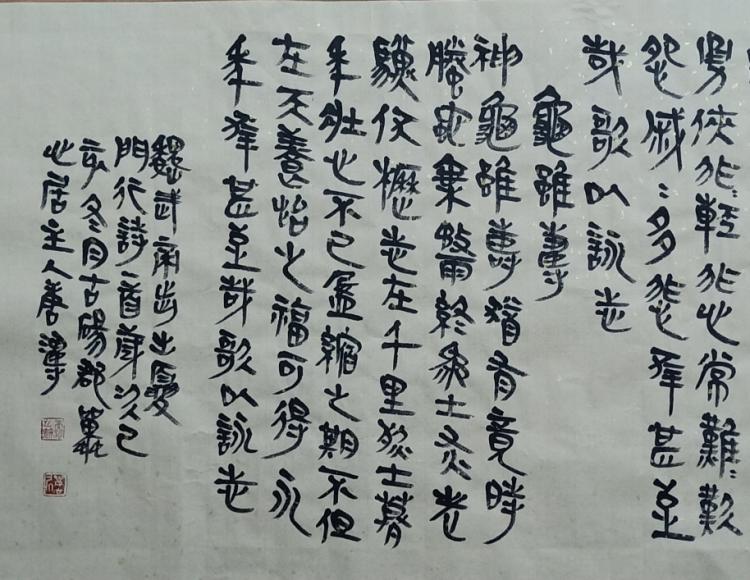 勇俠非〻輕非心常難〻歎
怨戚〻多悲幸甚至
哉歌以詠志
龜雖壽
神龜雖壽猶有竟時
騰蛇乘霧終為土灰老
驥伏櫪志在千里烈士暮
年壯心不已盈縮之期不但
在天養怡之福可得永
年幸甚至哉歌以詠志
魏武帝步出夏
門行詩一首歲次己
亥冬月古陽郡
心居主人唐